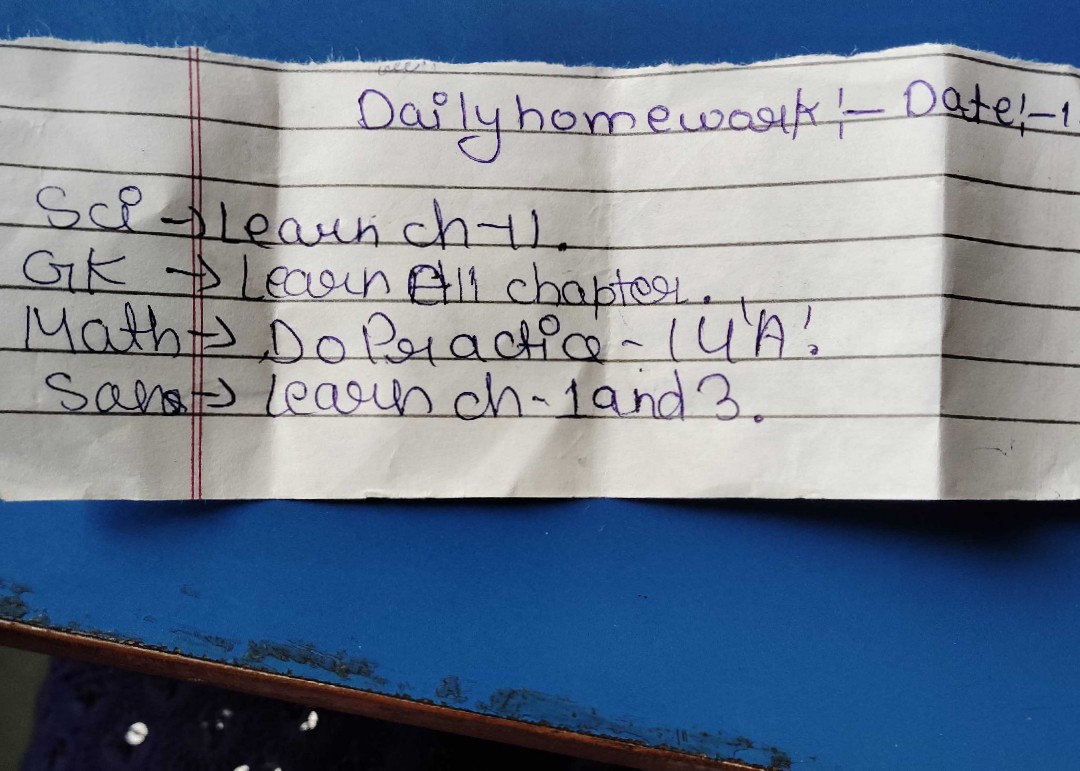 Daily homework :- Date :- 1
Sci → Learn ch-11.
GK → Learn All chapter.
Math → Do Practice - 14 'A'.
San → Learn ch-1 and 3.